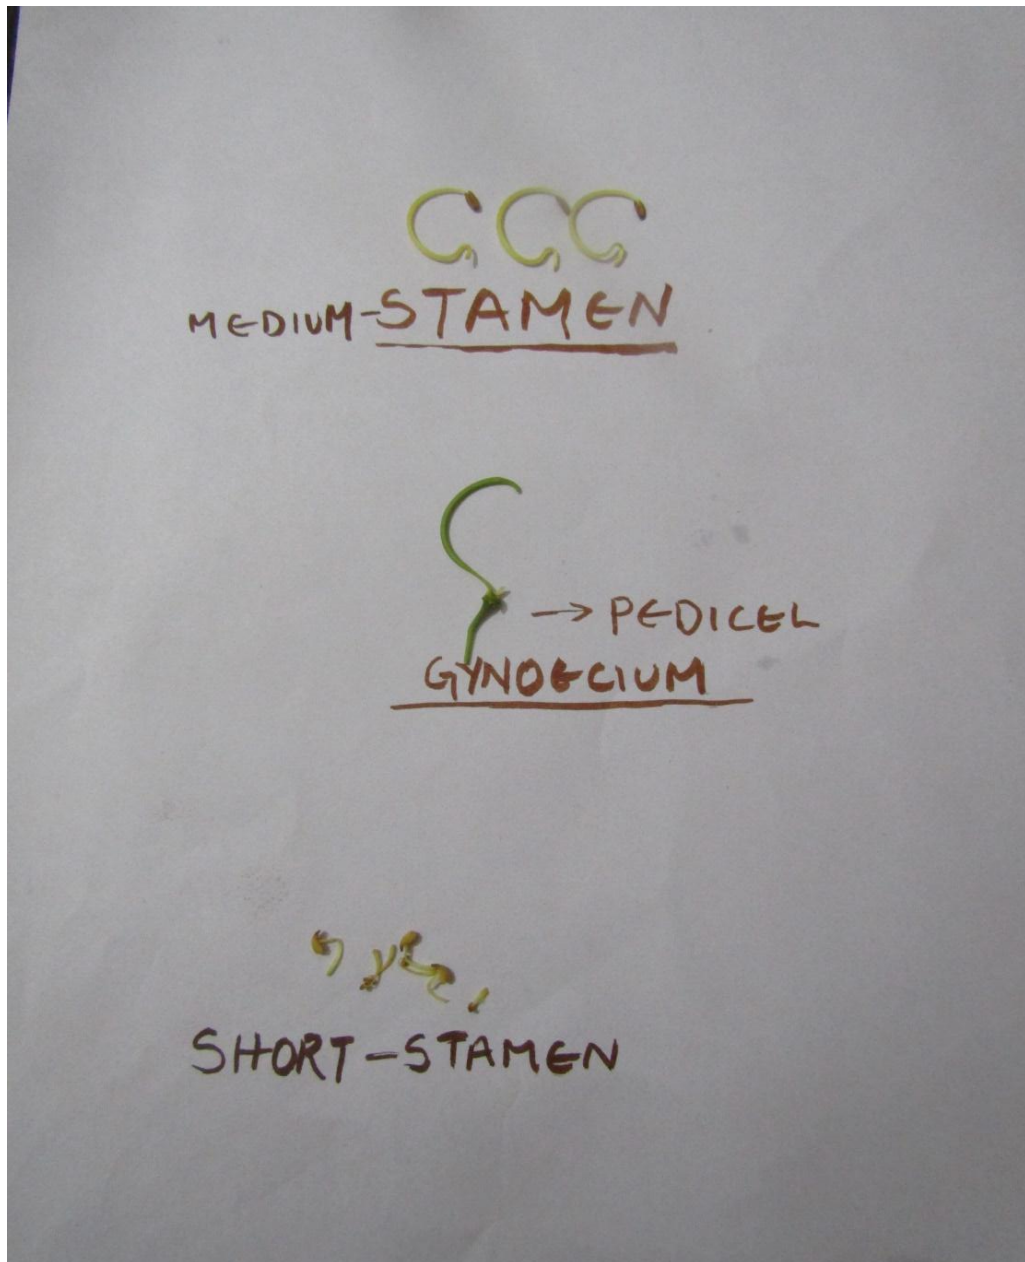 MEDIUM-STAMEN
→ PEDICEL
GYNOECIUM
SHORT-STAMEN